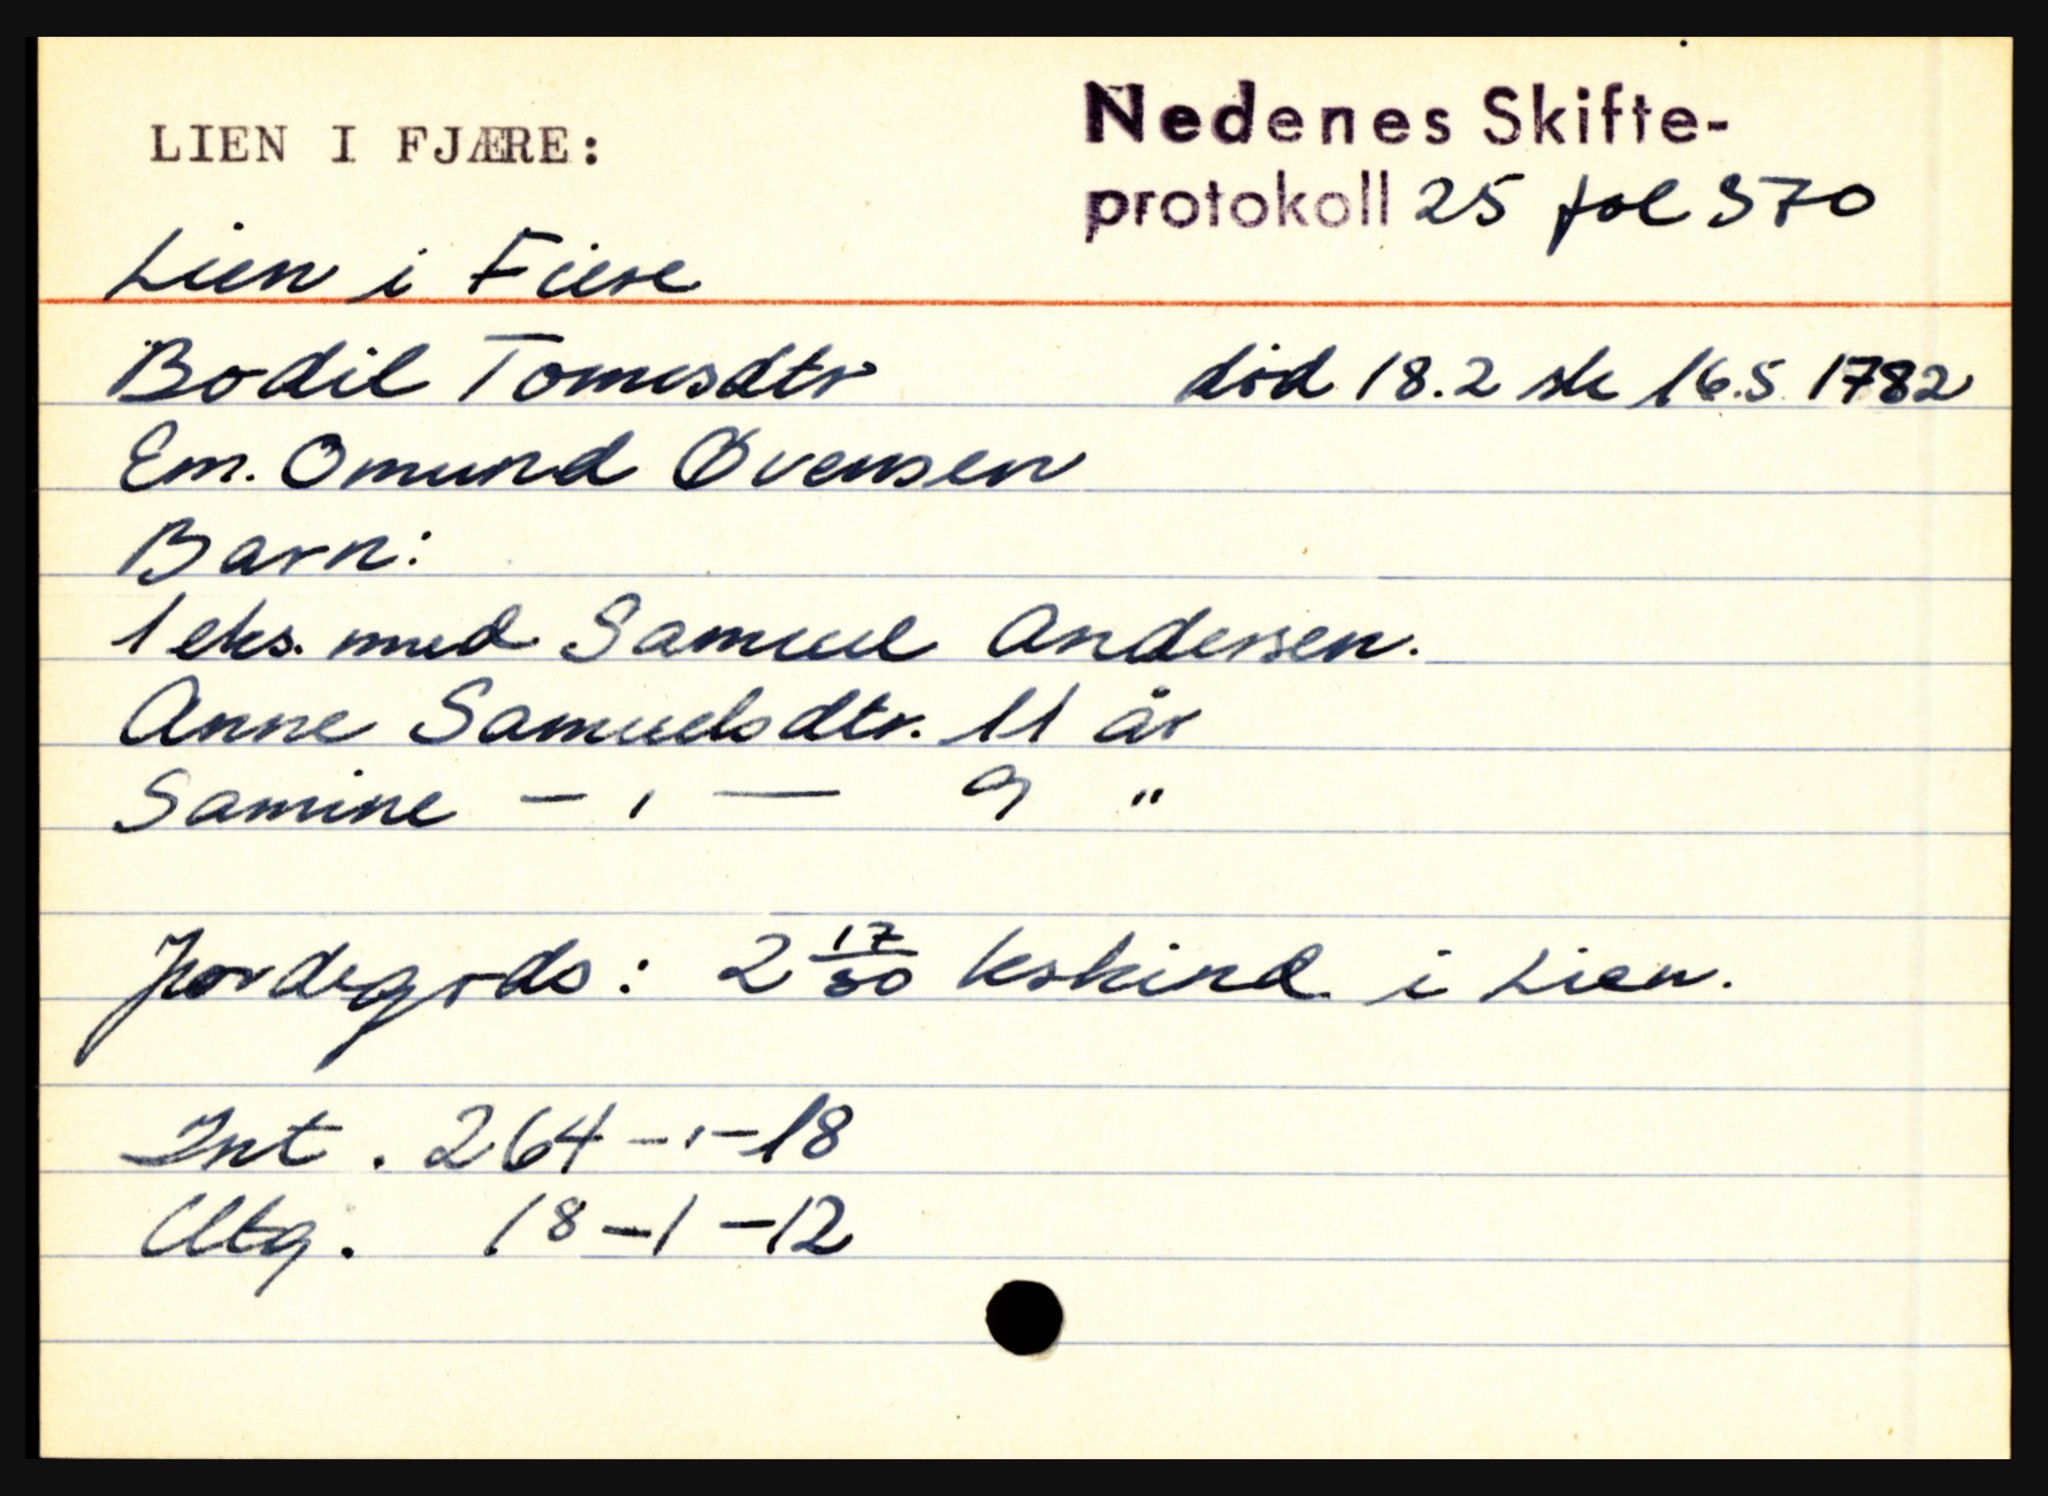 LIEN I FJÆRE:
Nedenes Skifte-
protokoll 25 fol 370
Lien i Fiere
Bodil Tomesdtr død 18.2 sk 16.5 1782
Em. Omund Øvensen
Barn:
1 eks. med Samuel Andersen.
Anne Samuelsdtr. 11 år
Samine — , — 9 "
Jordegods: 2 17/30 kskind i Lien.
Int. 264 - , - 18
Utg. 18 - 1 - 12